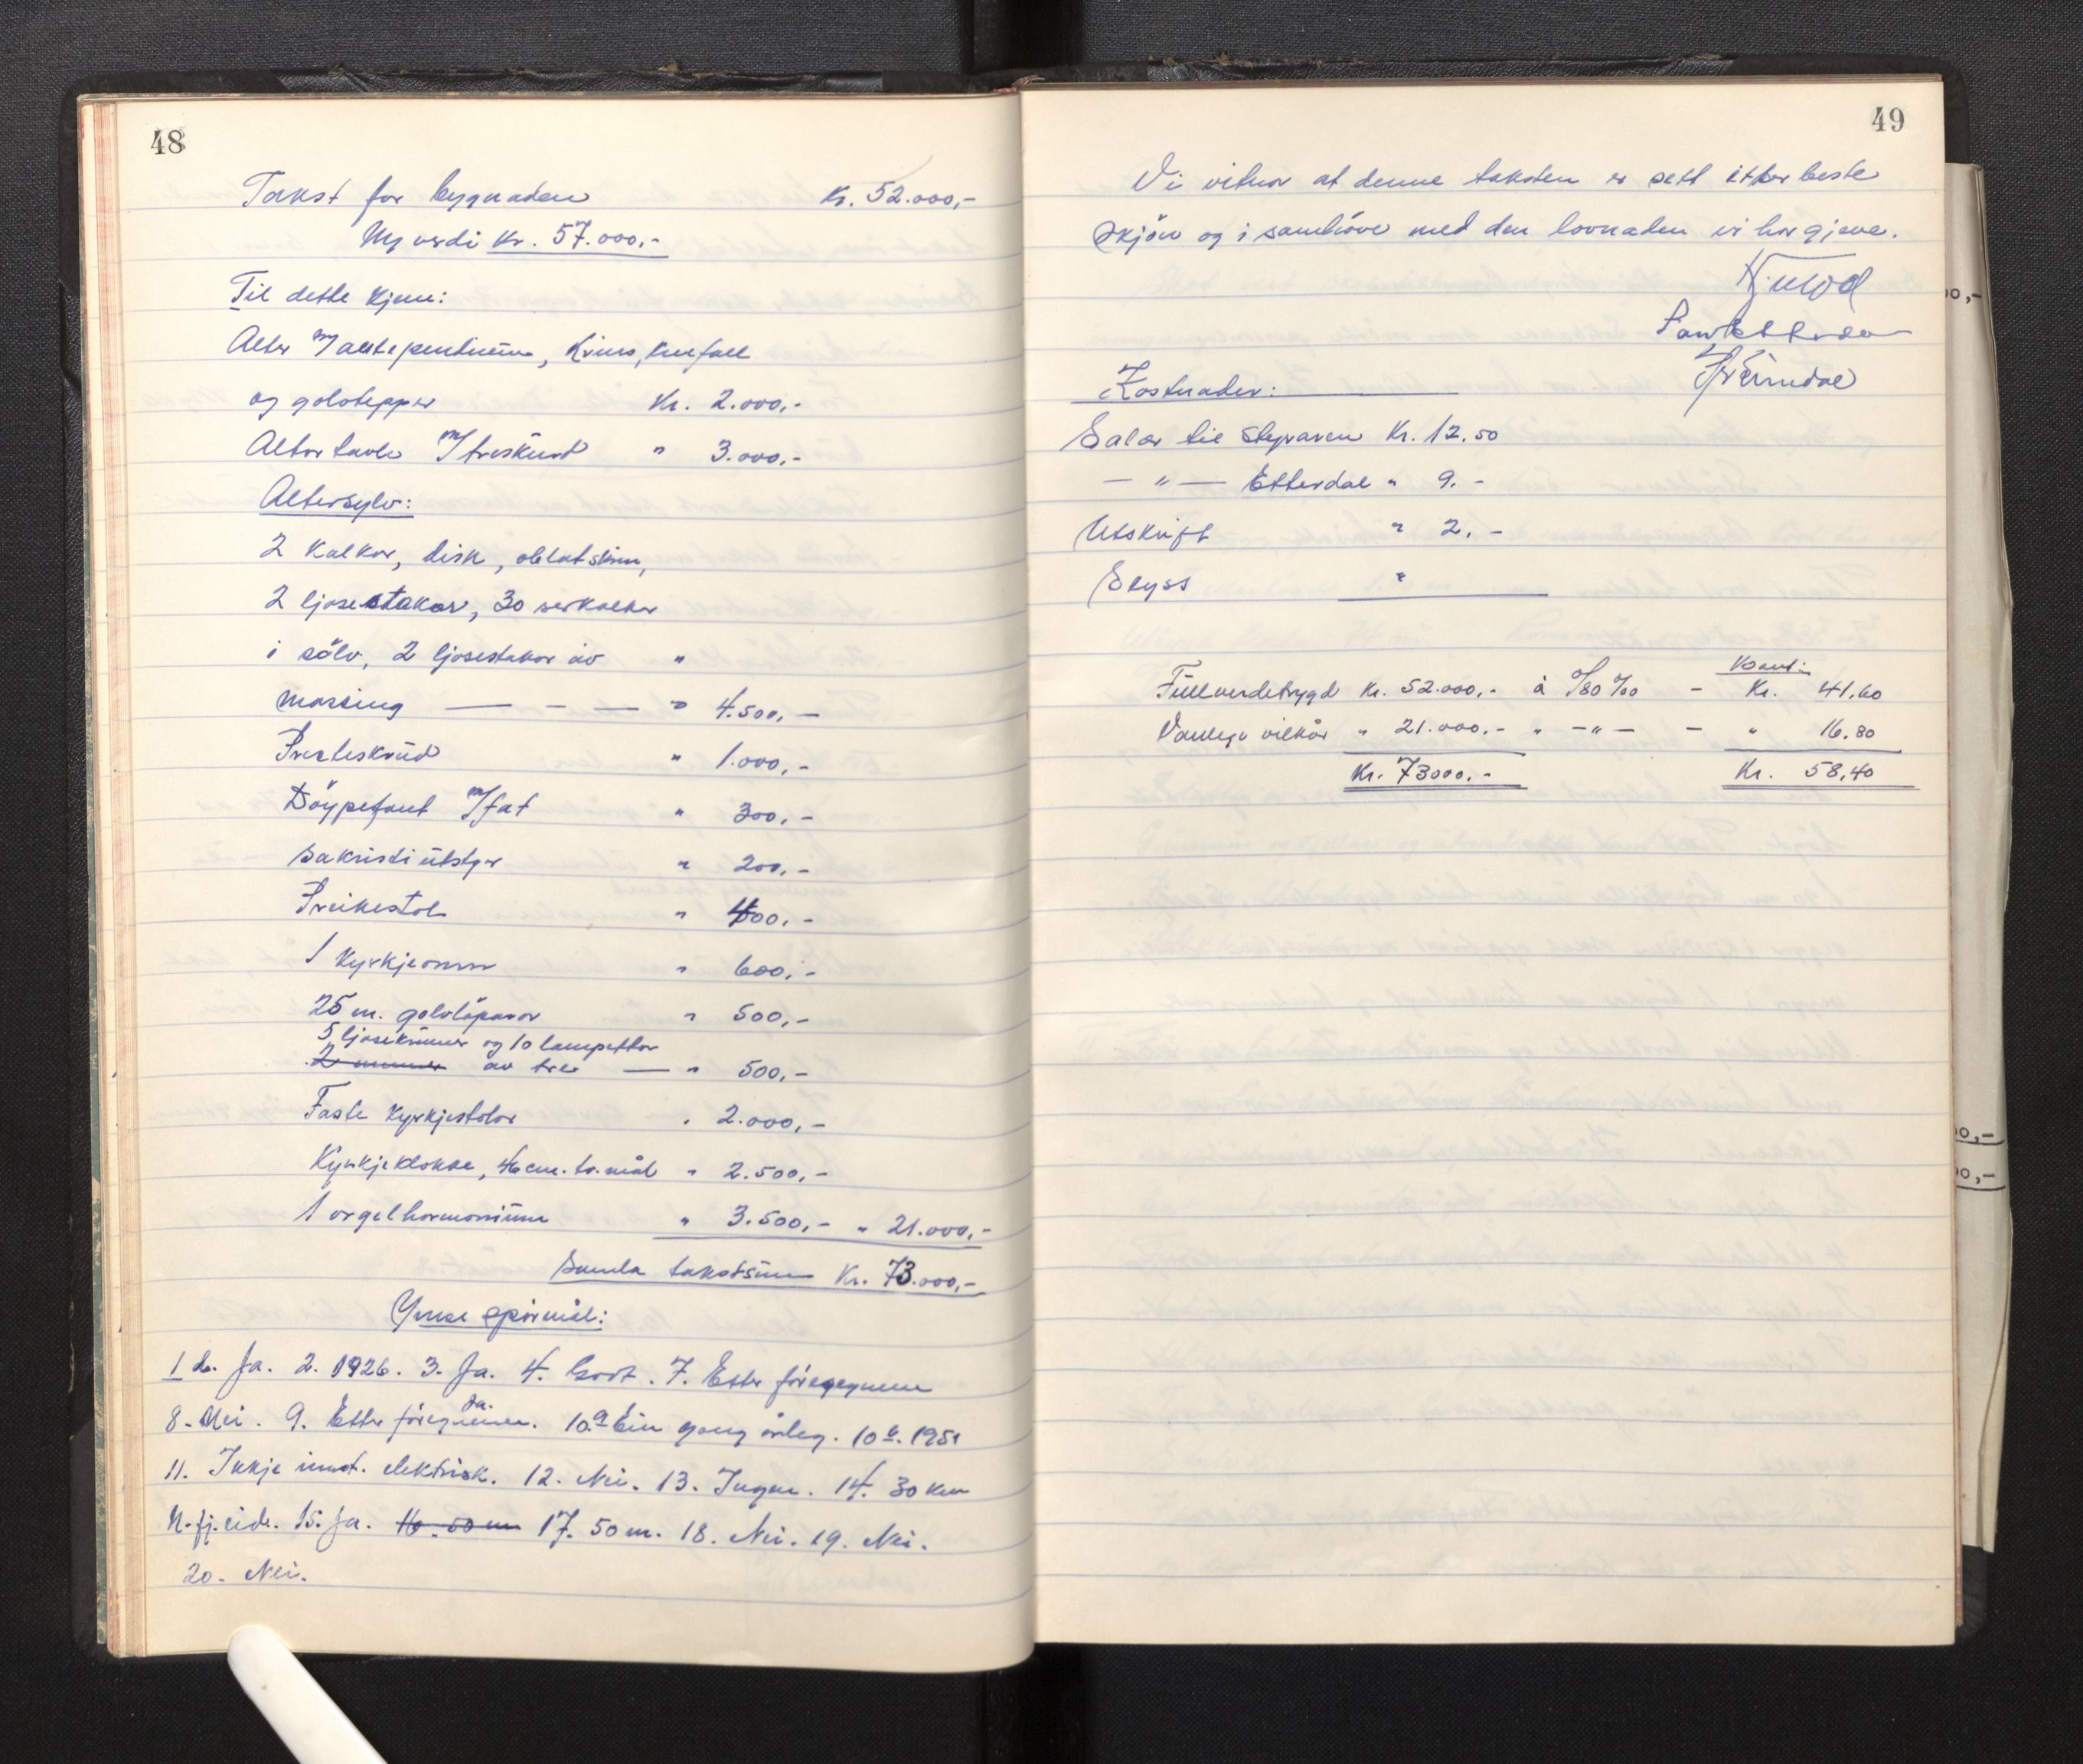 48
Takst for bygnaden Kr. 52.000,-
Ny verdi Kr. 57.000,-
Til dette kjem:
Alter m/ antependium, krins, knefall
og golvtepper Kr. 2.000,-
Altertavle m/ treskurd " 3.000,-
Altersylv:
2 kalkar, disk, oblatskrin,
2 ljosestakar, 30 serkalkar
i sölv, 2 ljosestakar av "
massing — - — " 4.500,—
Presteskrud " 1.000,-
Döypefont m/fat " 300,-
Sakristiutstyr " 200,-
Preikestol " 400,-
1 kyrkjeomn " 600,-
25 m. golvlöparar " 500,-
5 ljosekruner og 10 lampettar
2 omner av tre — " 500,-
Faste kyrkjestolar " 2.000,-
Kyrkjeklokke, 46 cm. tv.mål " 2.500,-
1 orgelharmonium " 3.500,- " 21.000,-
Samla takstsum Kr. 73.000,-
Ymse spörmål:
1 b. Ja. 2. 1926. 3. Ja. 4. Godt. 7. Etter föresegnene
8. Nei. 9. Etter föresegnene. Ja. 10a Ein gong årleg. 10b. 1951
11. Ikkje innst. elektrisk. 12. Nei. 13. Ingen. 14. 30 km
N.fj.eid. 15. Ja. 16. 50 m 17. 50 m. 18. Nei. 19. Nei.
20. Nei.
49
Vi vitnar at denne taksten er sett etter beste
skjön og i samhöve med den lovnaden vi har gjeve.
Kostnader:
Salær til styraren Kr. 12.50
— " — Etterdal " 9.-
Utskrift " 2.-
Skyss "
Kont.
Fullverdetrygd Kr. 52.000,- à 0/80 ‰ - Kr. 41.60
Vanlege vilkår " 21.000.- " -"- - " 16.80
Kr. 73000.- Kr. 58,40
00,-
00,-
00,-